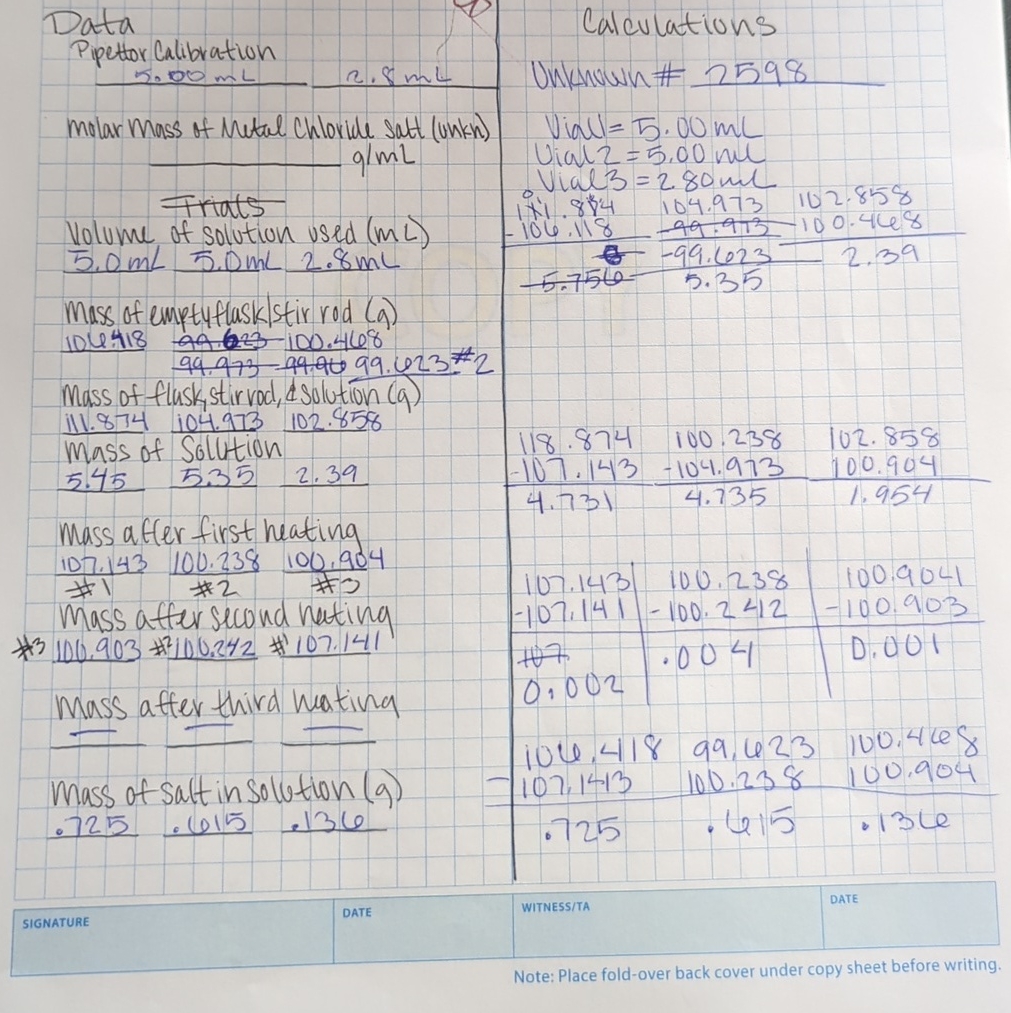 Data
Pipettor Calibration
5.00 mL 2.8 mL
Molar Mass of Metal Chloride Salt (unkn)
g/mL
Trials
Volume of solution used (mL)
5.0mL 5.0mL 2.8mL
Mass of empty flask/stir rod (g)
106.418 99.623 100.468
99.973 99.96 99.623 #2
Mass of flask, stir rod, & solution (g)
111.874 104.973 102.858
Mass of Solution
5.45 5.35 2.39
Mass after first heating
107.143 100.238 100.904
#1 #2 #3
Mass after second heating
#3 100.903 #2 100.242 #1 107.141
Mass after third heating
Mass of salt in solution (g)
.725 .615 .136
Calculations
Unknown # 2598
Vial 1 = 5.00 mL
Vial 2 = 5.00 mL
Vial 3 = 2.80 mL
111.874 104.973 102.858
-106.118 99.973 -100.468
-99.623 2.39
5.756 5.35
118.874 100.238 102.858
-107.143 -104.973 100.904
4.731 4.735 1.954
107.143 100.238 100.904
-107.141 -100.242 -100.903
107 .004 0.001
0.002
106.418 99.623 100.468
-107.143 100.238 100.904
.725 .615 .136
SIGNATURE DATE WITNESS/TA DATE
Note: Place fold-over back cover under copy sheet before writing.